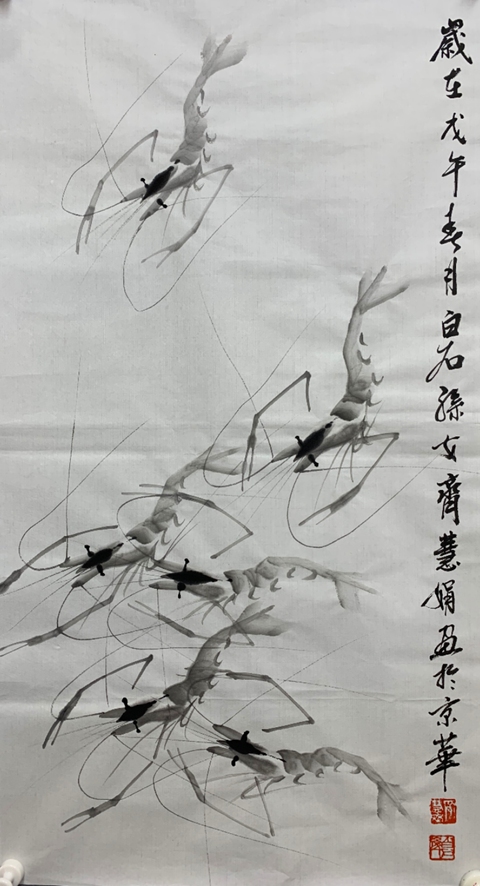 歲在戊午春月白石孫女齊慧娟画於京華